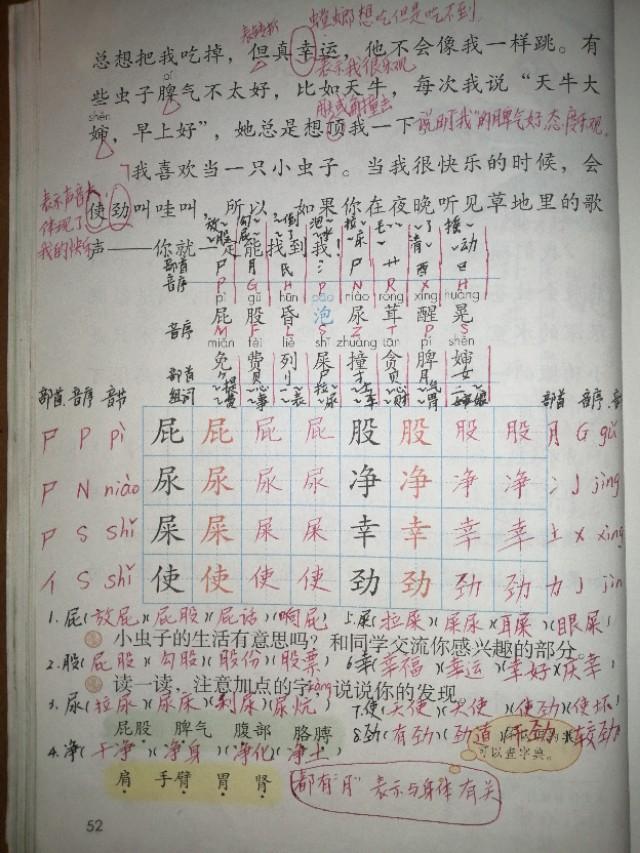 表转折 螳螂想吃但是吃不到.
总想把我吃掉，但真幸运，他不会像我一样跳。有
表示我很乐观
些虫子脾气不太好，比如天牛，每次我说“天牛大
pí
shěn
婶，早上好”，她总是想顶我一下 说明“我”的脾气好 态度乐观.
我喜欢当一只小虫子。当我很快乐的时候，会
表示声音大
体现了
我的快乐
使劲叫哇叫，所以，如果你在夜晚听见草地里的歌
声——你就一定能找到我！
部首 尸 月 氏 氵 尸 艹 酉 日
音序 P G H P N R X H
pì gǔ hūn pào niào róng xǐng huàng
屁 股 昏 泡 尿 茸 醒 晃
音序 M F L S Z T P S
miǎn fèi liè shǐ zhuàng tān pí shěn
免 费 列 屎 撞 贪 脾 婶
部首
组词
部首 音序 音节 部首 音序 音
尸 P pì 屁 屁 屁 屁 股 股 股 股 月 G gǔ
尸 N niào 尿 尿 尿 尿 净 净 净 净 冫 J jìng
尸 S shǐ 屎 屎 屎 屎 幸 幸 幸 幸 土 X xìng
亻 S shǐ 使 使 使 使 劲 劲 劲 劲 力 J jìn
1.屁(放屁)(屁股)(屁话)(响屁) 5.屎(拉屎)(屎尿)(耳屎)(眼屎)
小虫子的生活有意思吗？和同学交流你感兴趣的部分。
2.股(屁股)(勾股)(股份)(股票) 6.幸(幸福)(幸运)(幸好)(庆幸)
读一读，注意加点的字，说说你的发现。
3.尿(拉尿)(尿床)(利尿)(尿炕) 7.使(天使)(大使)(使劲)(使坏)
kàng
屁股 脾气 腹部 胳膊
4.净(干净)(净身)(净化)(净土) 8.劲(有劲)(劲道)(干劲)(较劲)
可以查字典。
肩 手臂 胃 肾
都有“月” 表示与身体有关
52